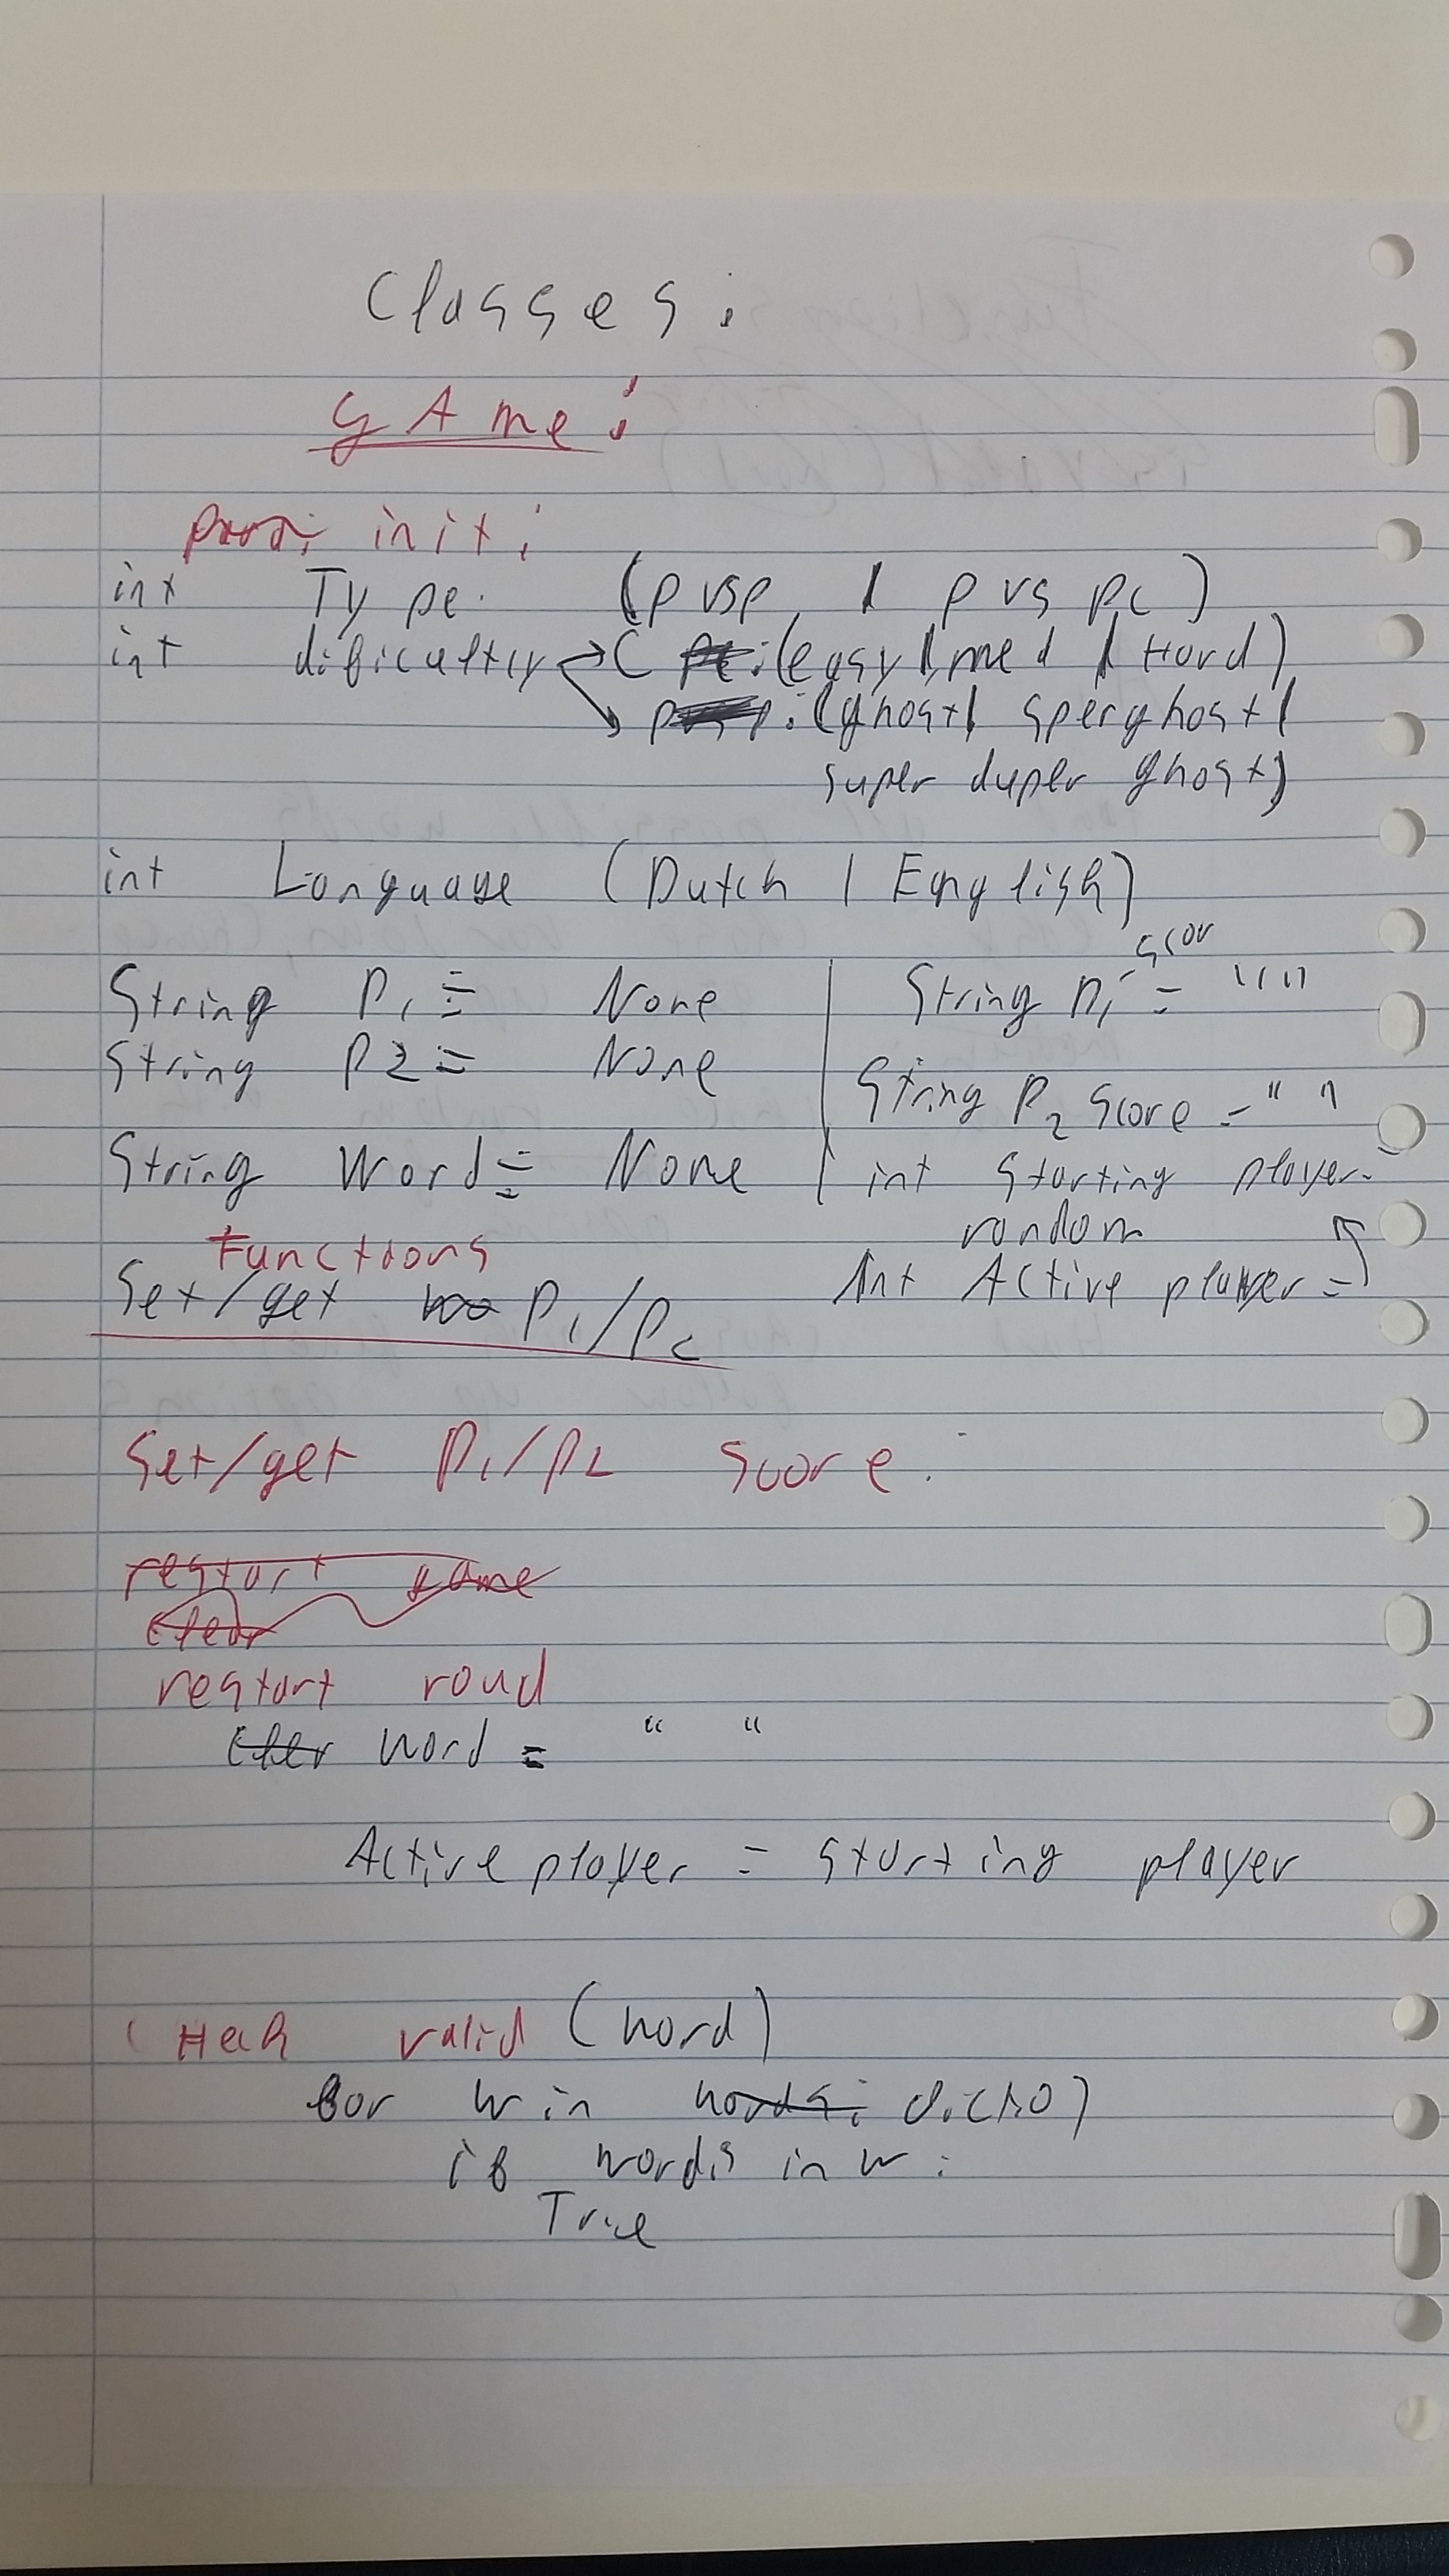 Classes:
GAme:
init:
int Type. (p vsp | p vs pc)
int dificultiy C :(easy | med | Hard)
p :(ghost | sperghost |
super duper ghost)
int Language (Dutch | English)
String P1 = None
String P2 = None
String Word = None
scor
String P1 = " "
String P2 Score = " "
int Starting player =
random
int Active player =
Functions
Set/get P1/P2
Set/get P1/P2 Score.
restart game
Clear
restart roud
word = " "
Active player = starting player
CHeck valid (word)
for w in words: dicto)
if word is in w:
True